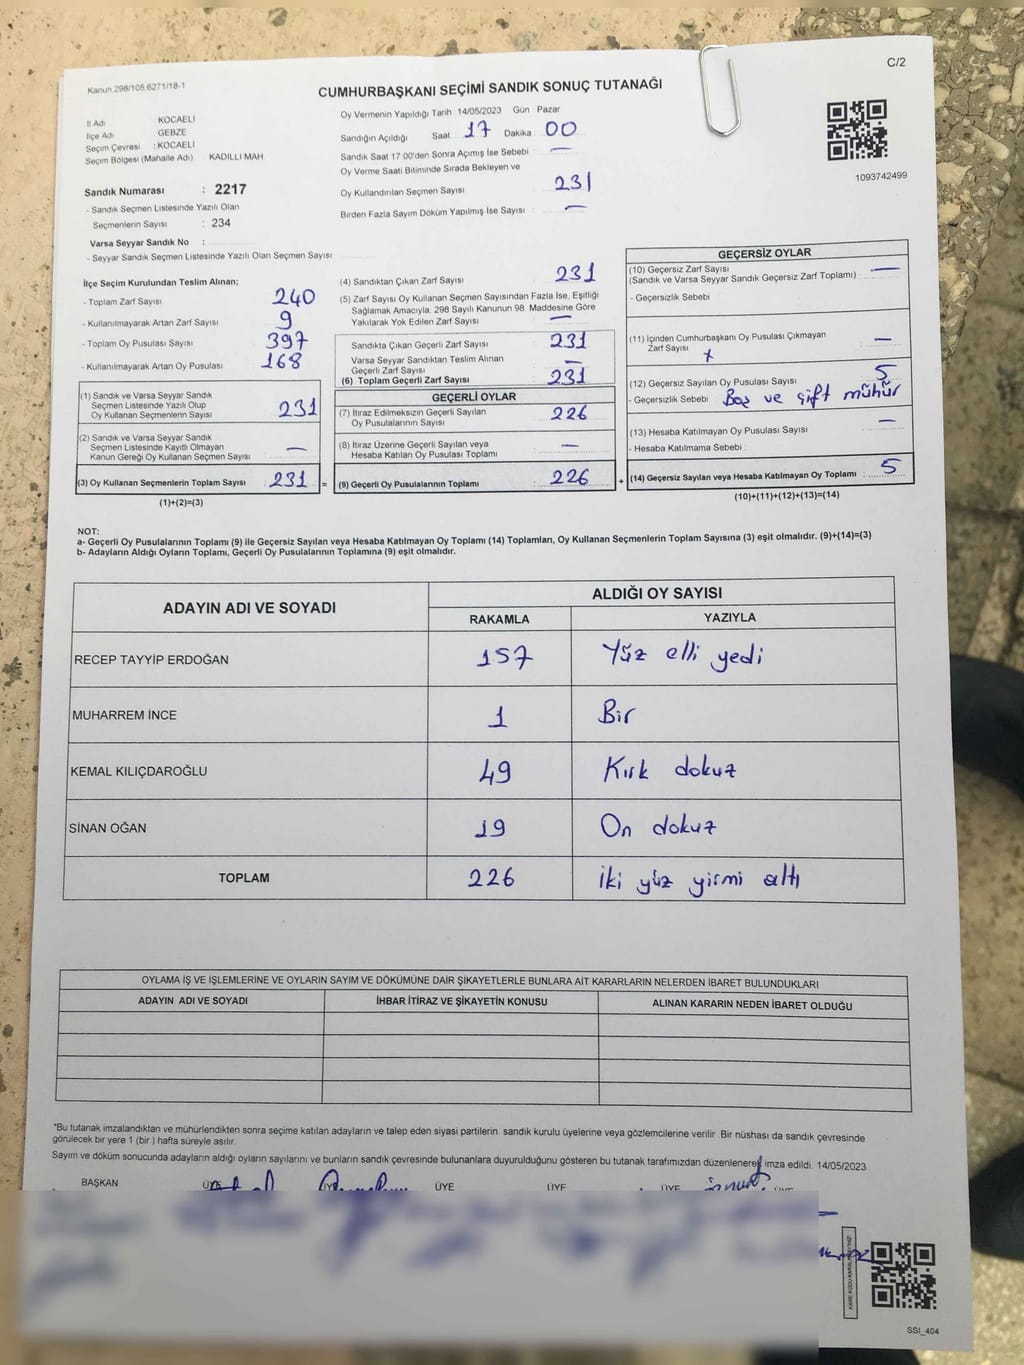 C/2
Kanun.298/105,6271/18-1
CUMHURBAŞKANI SEÇİMİ SANDIK SONUÇ TUTANAĞI
İl Adı KOCAELİ
İlçe Adı GEBZE
Seçim Çevresi : KOCAELİ
Seçim Bölgesi (Mahalle Adı) KADILLI MAH.
Sandık Numarası : 2217
- Sandık Seçmen Listesinde Yazılı Olan
Seçmenlerin Sayısı : 234
Varsa Seyyar Sandık No :
- Seyyar Sandık Seçmen Listesinde Yazılı Olan Seçmen Sayısı
Oy Vermenin Yapıldığı Tarih 14/05/2023 Gün Pazar
Sandığın Açıldığı Saat 17 Dakika 00
Sandık Saat 17:00'den Sonra Açımış İse Sebebi : —
Oy Verme Saati Bitiminde Sırada Bekleyen ve
Oy Kullandırılan Seçmen Sayısı 231
Birden Fazla Sayım Döküm Yapılmış İse Sayısı : —
1093742499
İlçe Seçim Kurulundan Teslim Alınan;
- Toplam Zarf Sayısı 240
- Kullanılmayarak Artan Zarf Sayısı 9
- Toplam Oy Pusulası Sayısı 397
- Kullanılmayarak Artan Oy Pusulası 168
(1) Sandık ve Varsa Seyyar Sandık
Seçmen Listesinde Yazılı Olup
Oy Kullanan Seçmenlerin Sayısı 231
(2) Sandık ve Varsa Seyyar Sandık
Seçmen Listesinde Kayıtlı Olmayan
Kanun Gereği Oy Kullanan Seçmen Sayısı —
(3) Oy Kullanan Seçmenlerin Toplam Sayısı : 231 =
(1)+(2)=(3)
(4) Sandıktan Çıkan Zarf Sayısı 231
(5) Zarf Sayısı Oy Kullanan Seçmen Sayısından Fazla İse, Eşitliği
Sağlamak Amacıyla, 298 Sayılı Kanunun 98. Maddesine Göre
Yakılarak Yok Edilen Zarf Sayısı —
Sandıkta Çıkan Geçerli Zarf Sayısı 231
Varsa Seyyar Sandıktan Teslim Alınan
Geçerli Zarf Sayısı —
(6) Toplam Geçerli Zarf Sayısı 231
GEÇERLİ OYLAR
(7) İtiraz Edilmeksizin Geçerli Sayılan
Oy Pusulalarının Sayısı 226
(8) İtiraz Üzerine Geçerli Sayılan veya
Hesaba Katılan Oy Pusulası Toplamı —
(9) Geçerli Oy Pusulalarının Toplamı : 226 +
GEÇERSİZ OYLAR
(10) Geçersiz Zarf Sayısı
(Sandık ve Varsa Seyyar Sandık Geçersiz Zarf Toplamı) : —
- Geçersizlik Sebebi
(11) İçinden Cumhurbaşkanı Oy Pusulası Çıkmayan
Zarf Sayısı —
(12) Geçersiz Sayılan Oy Pusulası Sayısı 5
- Geçersizlik Sebebi Boş ve çift mühür
(13) Hesaba Katılmayan Oy Pusulası Sayısı —
- Hesaba Katılmama Sebebi :
(14) Geçersiz Sayılan veya Hesaba Katılmayan Oy Toplamı : 5
(10)+(11)+(12)+(13)=(14)
NOT:
a- Geçerli Oy Pusulalarının Toplamı (9) ile Geçersiz Sayılan veya Hesaba Katılmayan Oy Toplamı (14) Toplamları, Oy Kullanan Seçmenlerin Toplam Sayısına (3) eşit olmalıdır. (9)+(14)=(3)
b- Adayların Aldığı Oyların Toplamı, Geçerli Oy Pusulalarının Toplamına (9) eşit olmalıdır.
ADAYIN ADI VE SOYADI ALDIĞI OY SAYISI
RAKAMLA YAZIYLA
RECEP TAYYİP ERDOĞAN 157 Yüz elli yedi
MUHARREM İNCE 1 Bir
KEMAL KILIÇDAROĞLU 49 Kırk dokuz
SİNAN OĞAN 19 On dokuz
TOPLAM 226 iki yüz yirmi altı
OYLAMA İŞ VE İŞLEMLERİNE VE OYLARIN SAYIM VE DÖKÜMÜNE DAİR ŞİKAYETLERLE BUNLARA AİT KARARLARIN NELERDEN İBARET BULUNDUKLARI
ADAYIN ADI VE SOYADI İHBAR İTİRAZ VE ŞİKAYETİN KONUSU ALINAN KARARIN NEDEN İBARET OLDUĞU
*Bu tutanak imzalandıktan ve mühürlendikten sonra seçime katılan adayların ve talep eden siyasi partilerin sandık kurulu üyelerine veya gözlemcilerine verilir. Bir nüshası da sandık çevresinde
görülecek bir yere 1 (bir) hafta süreyle asılır.
Sayım ve döküm sonucunda adayların aldığı oyların sayılarını ve bunların sandık çevresinde bulunanlara duyurulduğunu gösteren bu tutanak tarafımızdan düzenlenerek imza edildi. 14/05/2023
BAŞKAN ÜYE ÜYE ÜYE ÜYE ÜYE ÜYE
SSI_404